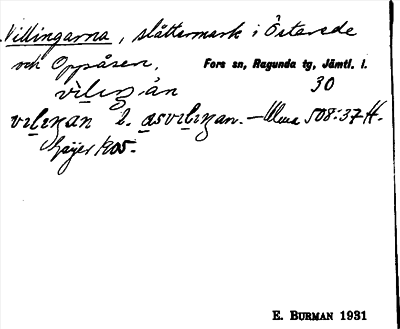 Villingarna, slåttermark i Österede
och Oppåsen, Fors sn, Ragunda tg, Jämtl. l.
vilıŋ·ån 30
vılıŋan l. asvılıŋan. – Ulma 508:37 H.
Geijer 1905.
E. BURMAN 1931